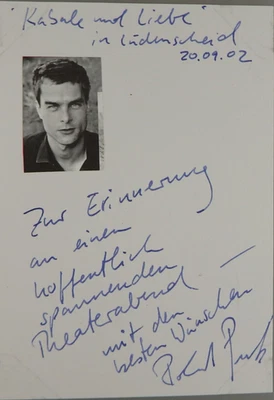 "Kabale und Liebe"
in Lüdenscheid
20.09.02
Zur Erinnerung
an einen
hoffentlich
spannenden
Theaterabend —
mit den
besten Wünschen